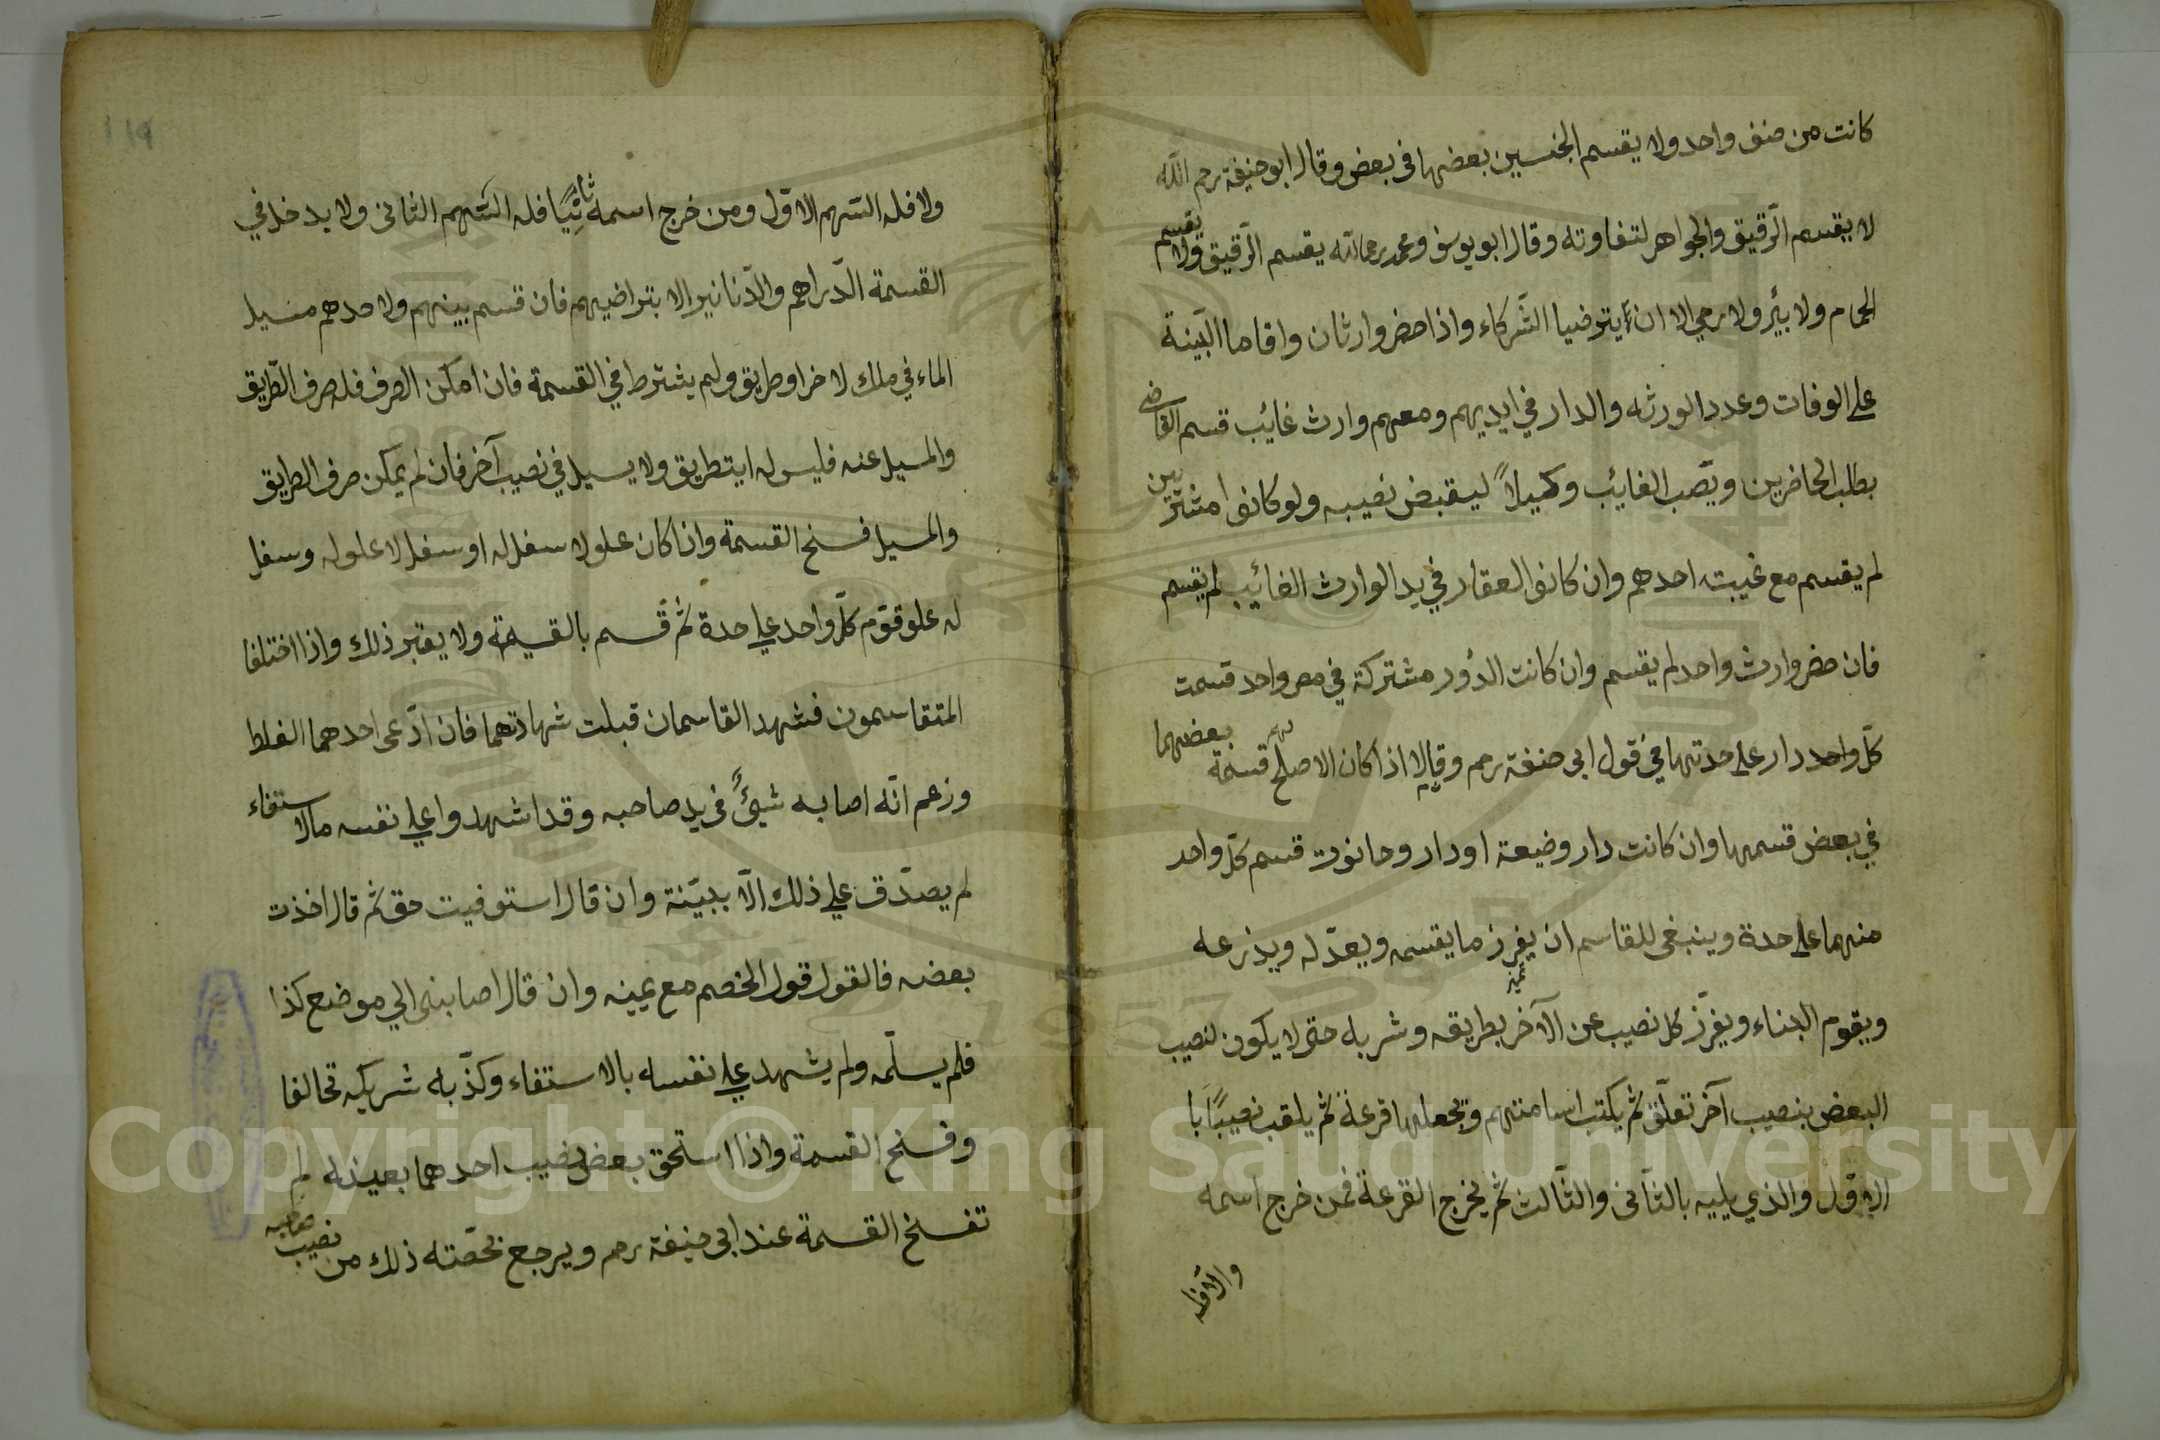 كانت من صنف واحد ولا يقسم الجنسين بعضها في بعض وقال ابو حنيفة رحم الله
لا يقسم الرّقيق والجواهر لتفاوته وقال ابو يوسف ومحمد رحمها الله يقسم الرّقيق ولا يقسم
الحمام ولا بئر ولا رحي الا ان يترضيا الشّركاء واذا حضر وارثان واقاما البيّنة
على الوفات وعدد الورثه والدار في ايديهم ومعهم وارث غائب قسم القاضي
بطلب الحاضرين وينصّب الغائب وكيلاً ليقبض نصيبه ولو كانوا مشترين
لم يقسم مع غيبته احدهم وان كانوا العقار في يد الوارث الغائب لم يقسم
فان حضر وارث واحد لم يقسم وان كانت الدُور مشتركة في مصر واحد قسمت
كلّ واحد دار على حدتها في قول ابي حنفة رحم وقالا اذا كان الاصلح لهم قسمة بعضهما
في بعض قسمها وان كانت دار وضيعة او دار وحانوت قسم كلّ واحد
منهما على حدة وينبغى للقاسم ان يفرز ما يقسمه ويعدّله ويذرعه
ويقوم البناء ويفرّز كل نصيب عن الآخر بطريقه وشربه حتى لا يكون لنصيب
البعض بنصيب آخر تعلّق ثم يكتب اسامتهم وتجعلها قرعة ثم يلقب نصيبًا با
الاوّل والذي يليه بالثّانى والثّالث ثم يخرج القرعة فمن خرج اسمه
ولا فله
ولا فله السّهم الاوّل ومن خرج اسمه ثانيًا فله السّهم الثانى ولا يدخل في
القسمة الدّراهم والدّنانير الا بتراضيهم فان قسم بينهم ولاحدهم مسيل
الماء في ملك لاخر او طريق ولم يشترط في القسمة فان امكن الصرف فله صرف الطّريق
والمسيل عنه فليس له ايتطريق ولا يسيل في نصيب آخر فان لم يمكن صرف الطريق
والمسيل فسخ القسمة وان كان علو لا سفل له او سفل لا علو له وسفل
له علو قوّم كلّ واحد على حدة ثم قسم بالقيمة ولا يعتبر ذلك واذا اختلفا
المتقاسمون فشهد القاسمان قبلت شهادتهما فان ادّعى احدهما الغلط
وزعم انّه اصابه شيئً في يد صاحبه وقد اشهدوا على نفسه مالاستفاء
لم يصدّق على ذلك الّا ببيّنة وان قال استوفيت حق ثم قال اخذت
بعضه فالقول قول الخصم مع يمينه وان قال اصابنى الي موضع كذا
فلم يسلّمه ولم يشهد على نفسه بالاستفاء وكذّبه شريكه تحالفا
وفسخ القسمة واذا استحق بعض نصيب احدهما بعينه لم
تفسخ القسمة عند ابى حنيفة رحم ويرجع بحصّته ذلك من نصيب صاحبه
Copyright © King Saud University